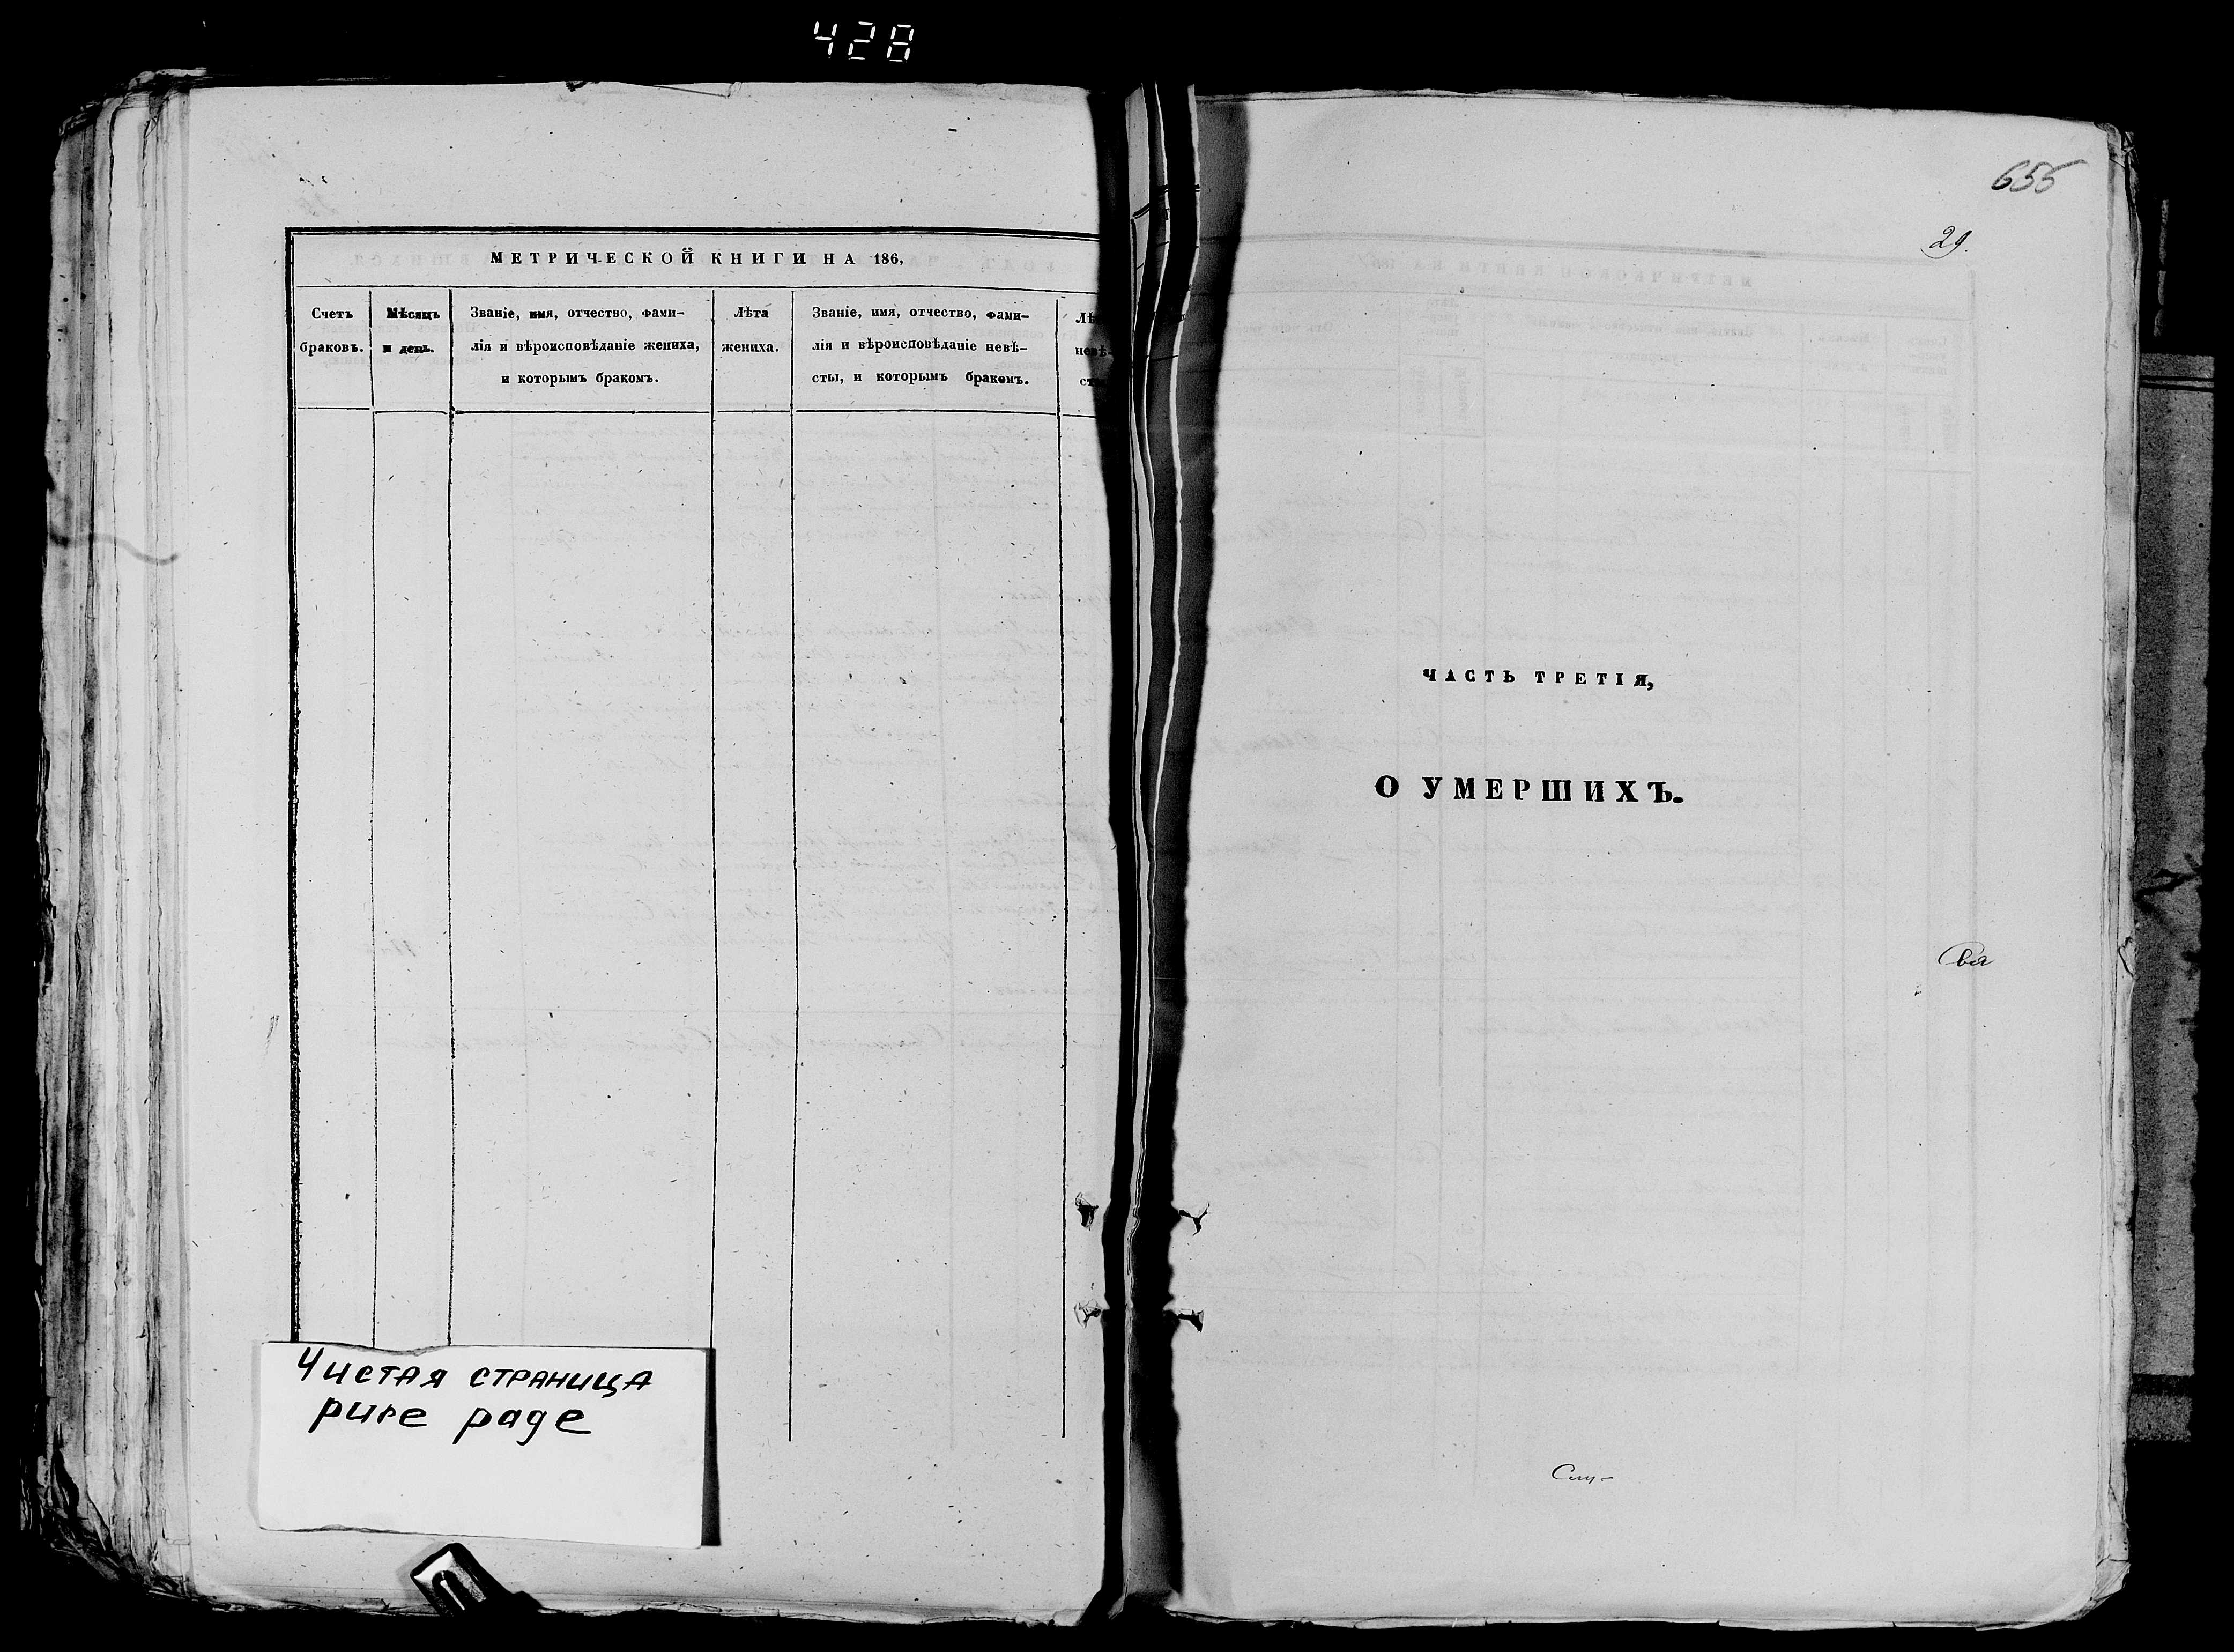 428
МЕТРИЧЕСКОЙ КНИГИ НА 186,
Счетъ
браковъ.
Мѣсяцъ
и день.
Званіе, имя, отчество, фами-
лія и вѣроисповѣданіе жениха,
и которымъ бракомъ.
Лѣта
жениха.
Званіе, имя, отчество, фами-
лія и вѣроисповѣданіе невѣ-
сты, и которымъ бракомъ.
Лѣ
невѣ-
ст
Чистая страница
pure page
655
29.
ЧАСТЬ ТРЕТІЯ,
О УМЕРШИХЪ.